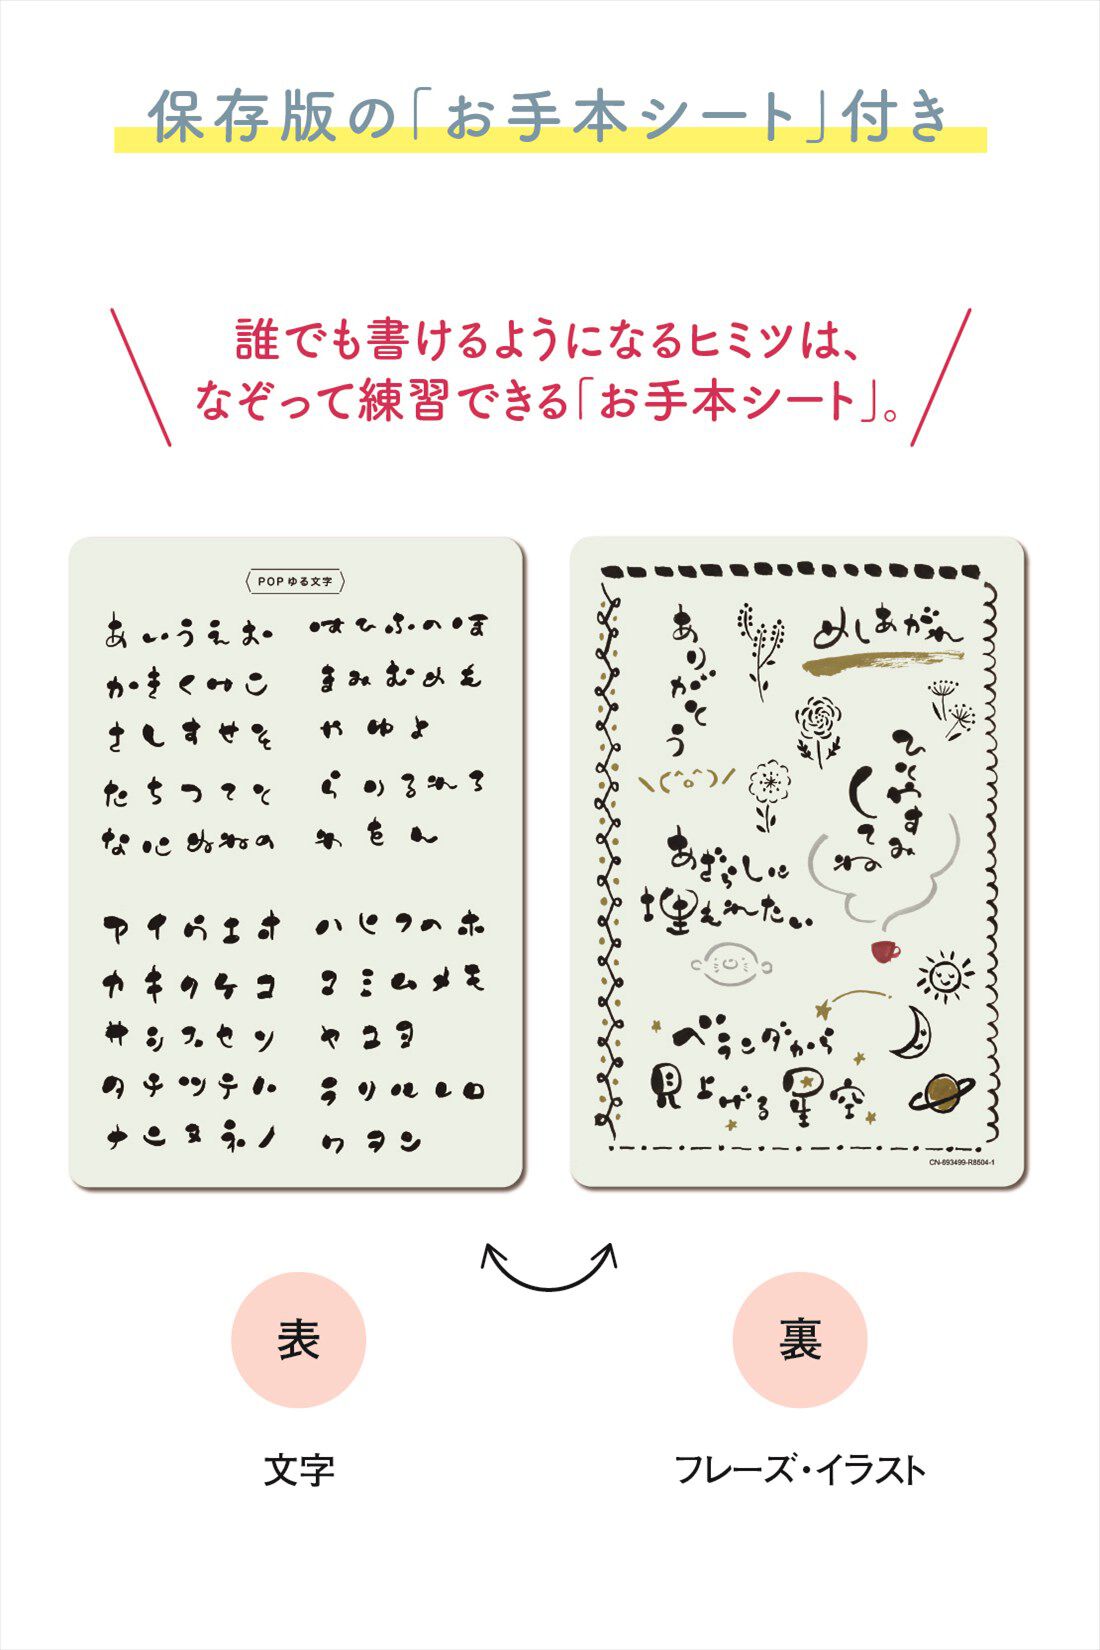 保存版の「お手本シート」付き
誰でも書けるようになるヒミツは、
なぞって練習できる「お手本シート」。
POP ゆる文字
あいうえお
かきくけこ
さしすせそ
たちつてと
なにぬねの
はひふへほ
まみむめも
やゆよ
らりるれろ
わをん
アイウエオ
カキクケコ
サシスセソ
タチツテト
ナニヌネノ
ハヒフヘホ
マミムメモ
ヤユヨ
ラリルレロ
ワヲン
ありがとう
めしあがれ
\(^o^)/
ひとやすみ
してね
あざらしに
埋もれたい
ベランダから
見上げる星空
CN-693499-R8504-1
表
裏
文字
フレーズ・イラスト